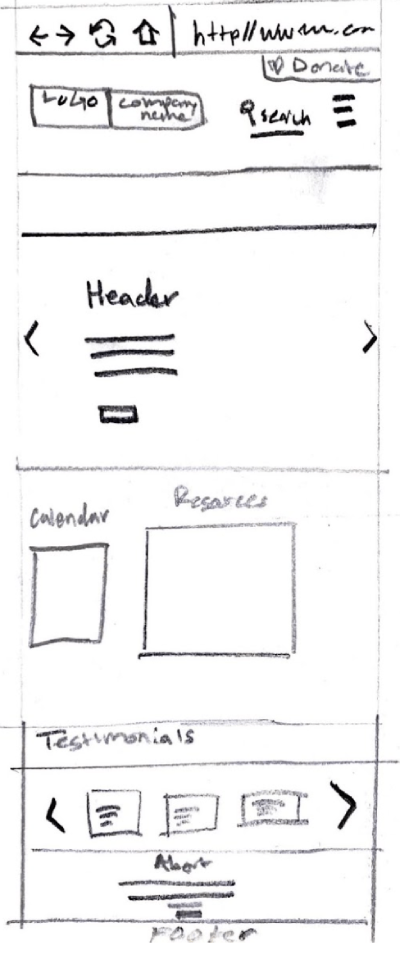 Donate
LOGO company name
search
Header
Calendar
Resources
Testimonials
About
Footer